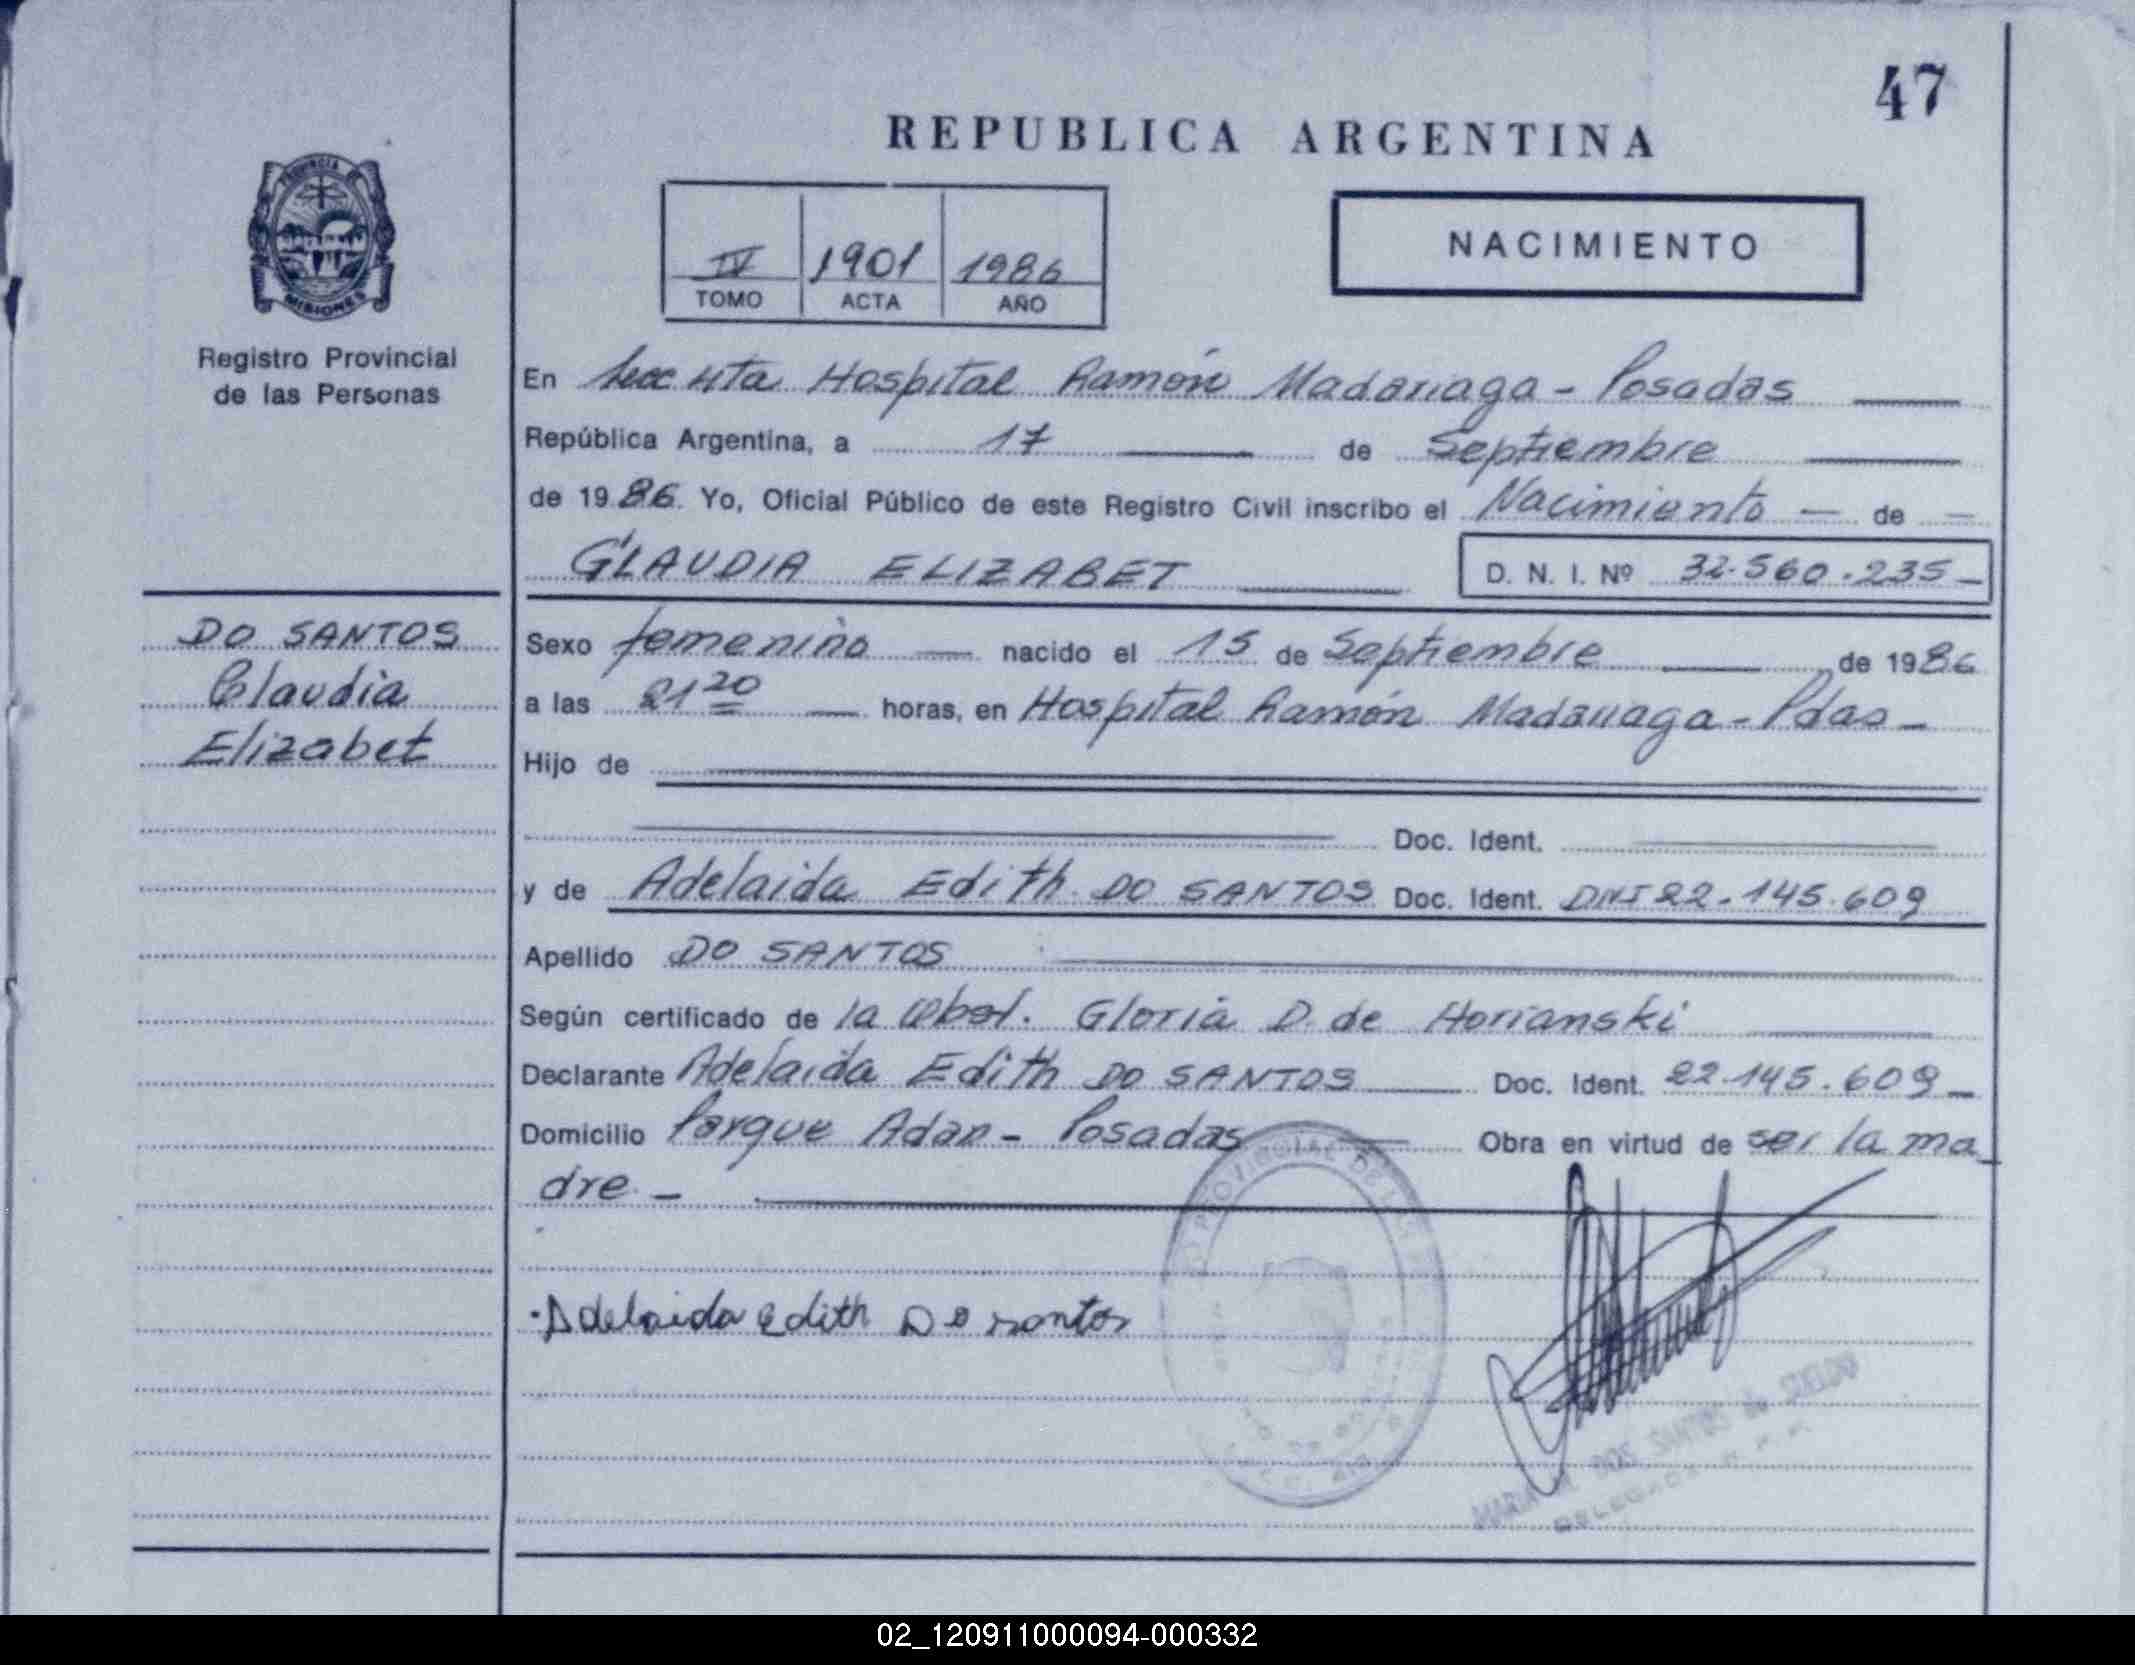 47
REPUBLICA ARGENTINA
PROVINCIA DE
MISIONES
IV 1901 1986
TOMO ACTA AÑO
NACIMIENTO
Registro Provincial
de las Personas
En Secc 4ta Hospital Ramón Madariaga - Posadas
República Argentina, a 17 de Septiembre
de 1986. Yo, Oficial Público de este Registro Civil inscribo el Nacimiento — de —
CLAUDIA ELIZABET D. N. I. Nº 32.560.235 -
DO SANTOS
Claudia
Elizabet
Sexo femenino — nacido el 15 de Septiembre de 1986
a las 21 20 — horas, en Hospital Ramón Madariaga - Pdas -
Hijo de
Doc. Ident.
y de Adelaida Edith DO SANTOS Doc. Ident. DNI 22.145.609
Apellido DO SANTOS
Según certificado de la Gloria D. de Horianski
Declarante Adelaida Edith DO SANTOS Doc. Ident. 22.145.609 -
Domicilio Parque Adan - Posadas Obra en virtud de ser la ma
dre -
Adelaida Edith Do santos
MARIA DOS SANTOS de
DELEGADA
02_120911000094-000332